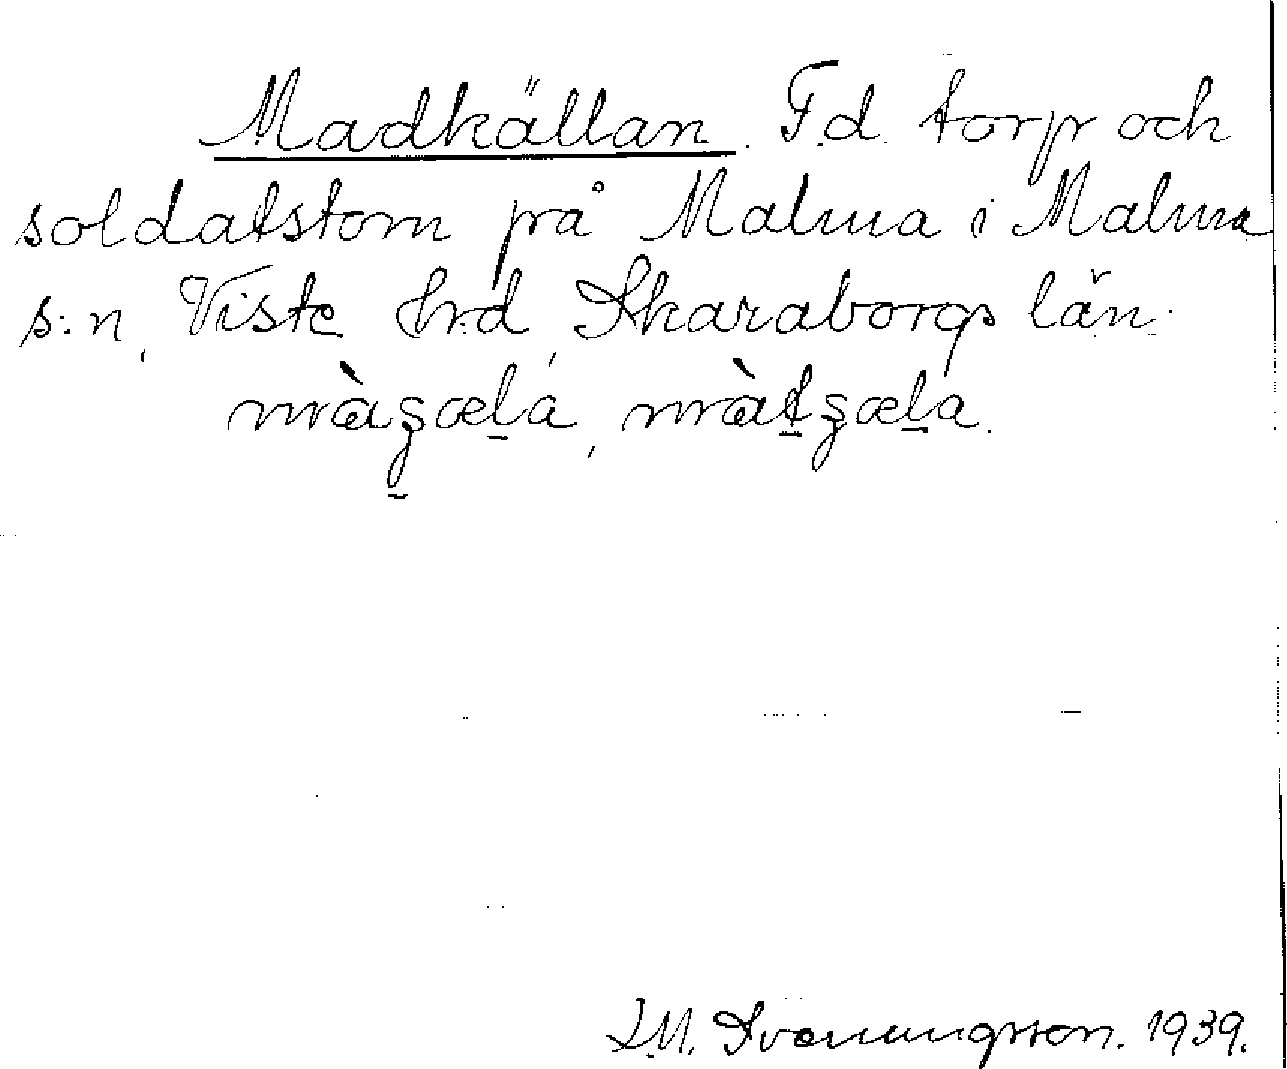 Madkällan. F.d. torp och
soldatstom på Malma i Malma
s:n, Viste hrd, Skaraborgs län.
màʒæḷa, màtʒæḷa.
J.M. Svenungsson. 1939.